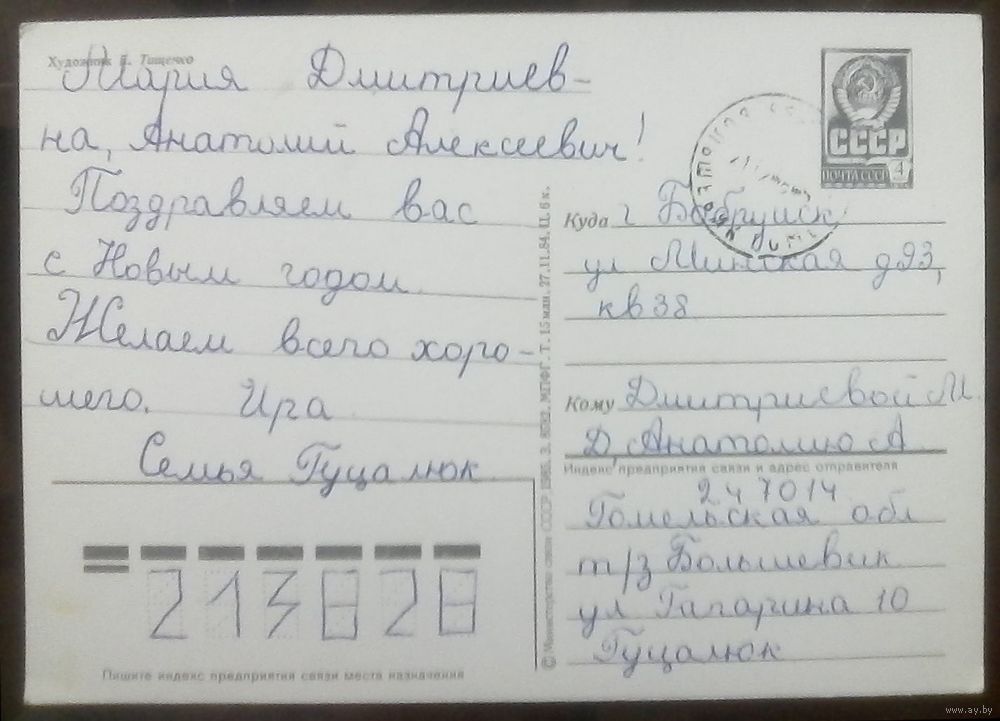 Художник Л. Тищенко
Мария Дмитриев-
на, Анатолий Алексеевич!
Поздравляем вас
с Новым годом.
Желаем всего хоро-
шего. Ира
Семья Гуцалюк
СССР
ПОЧТА СССР 4
Куда г Бобруйск
ул Минская д 93,
кв 38
Кому Дмитриевой М.
Д, Анатолию А
Индекс предприятия связи и адрес отправителя
247014
Гомельская обл
т/з Большевик
ул Гагарина 10
Гуцалюк
213828
Пишите индекс предприятия связи места назначения
© Министерство связи СССР, 1985. З. 8592. МПФГ. Т. 15 млн. 27.11.84. Ц. 6 к.
www.ay.by